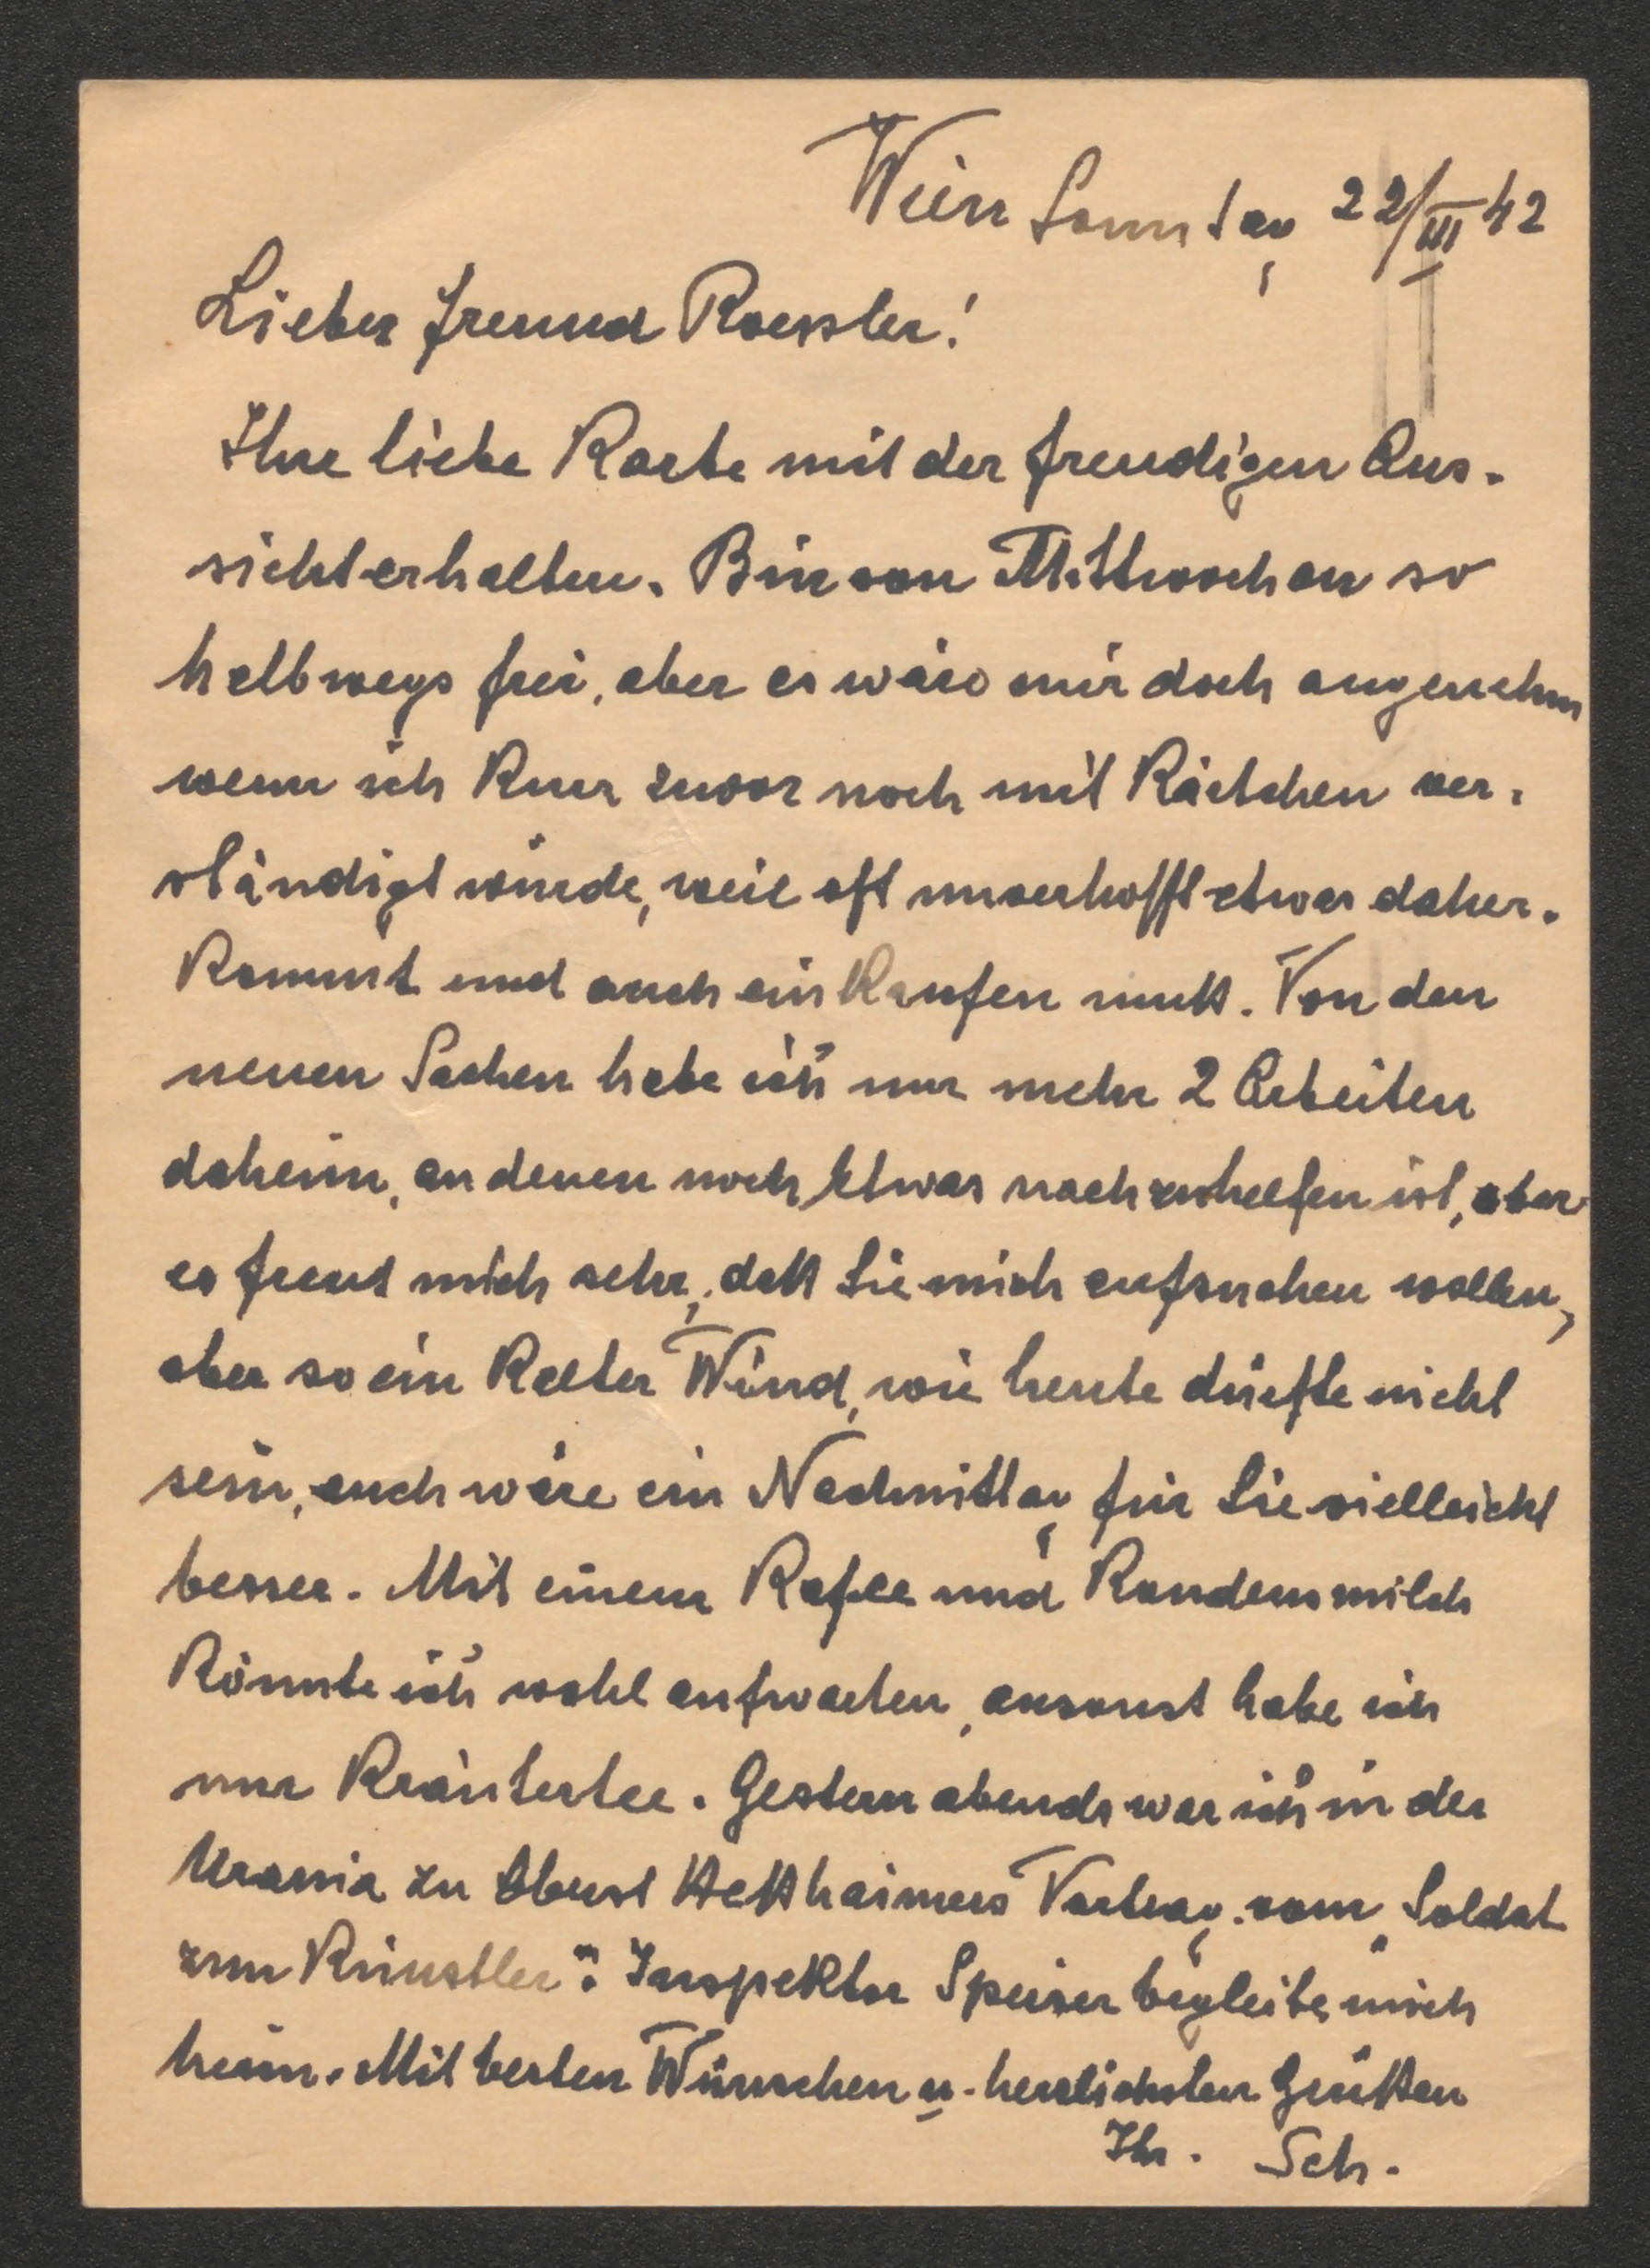 Wien Sonntag 22/III 42
Lieber Freund Roessler!
Ihre liebe Karte mit der freudigen Aus-
sicht erhalten. Bin von Mittwoch an so
halbwegs frei, aber es wäre mir doch angenehm
wenn ich kurz zuvor noch mit Kärtchen ver-
ständigt würde, weil oft unverhofft etwas daher-
kommt und auch einkaufen muß. Von den
neuen Sachen habe ich nur mehr 2 Arbeiten
daheim, an denen noch Etwas nachzuhelfen ist, aber
es freut mich sehr, daß Sie mich aufsuchen wollen,
aber so ein kalter Wind, wie heute dürfte nicht
sein, auch wäre ein Nachmittag für Sie vielleicht
besser. Mit einem Kafee und Kondensmilch
könnte ich wohl aufwarten, ansonst habe ich
nur Kräutertee. Gestern abends war ich in der
Urania zu Oberst Heßhaimers Vortrag „vom Soldat
zum Künstler“. Inspektor Speiser begleite mich
heim. Mit besten Wünschen u. herzlichsten Grüßen
Ihr. Sch.